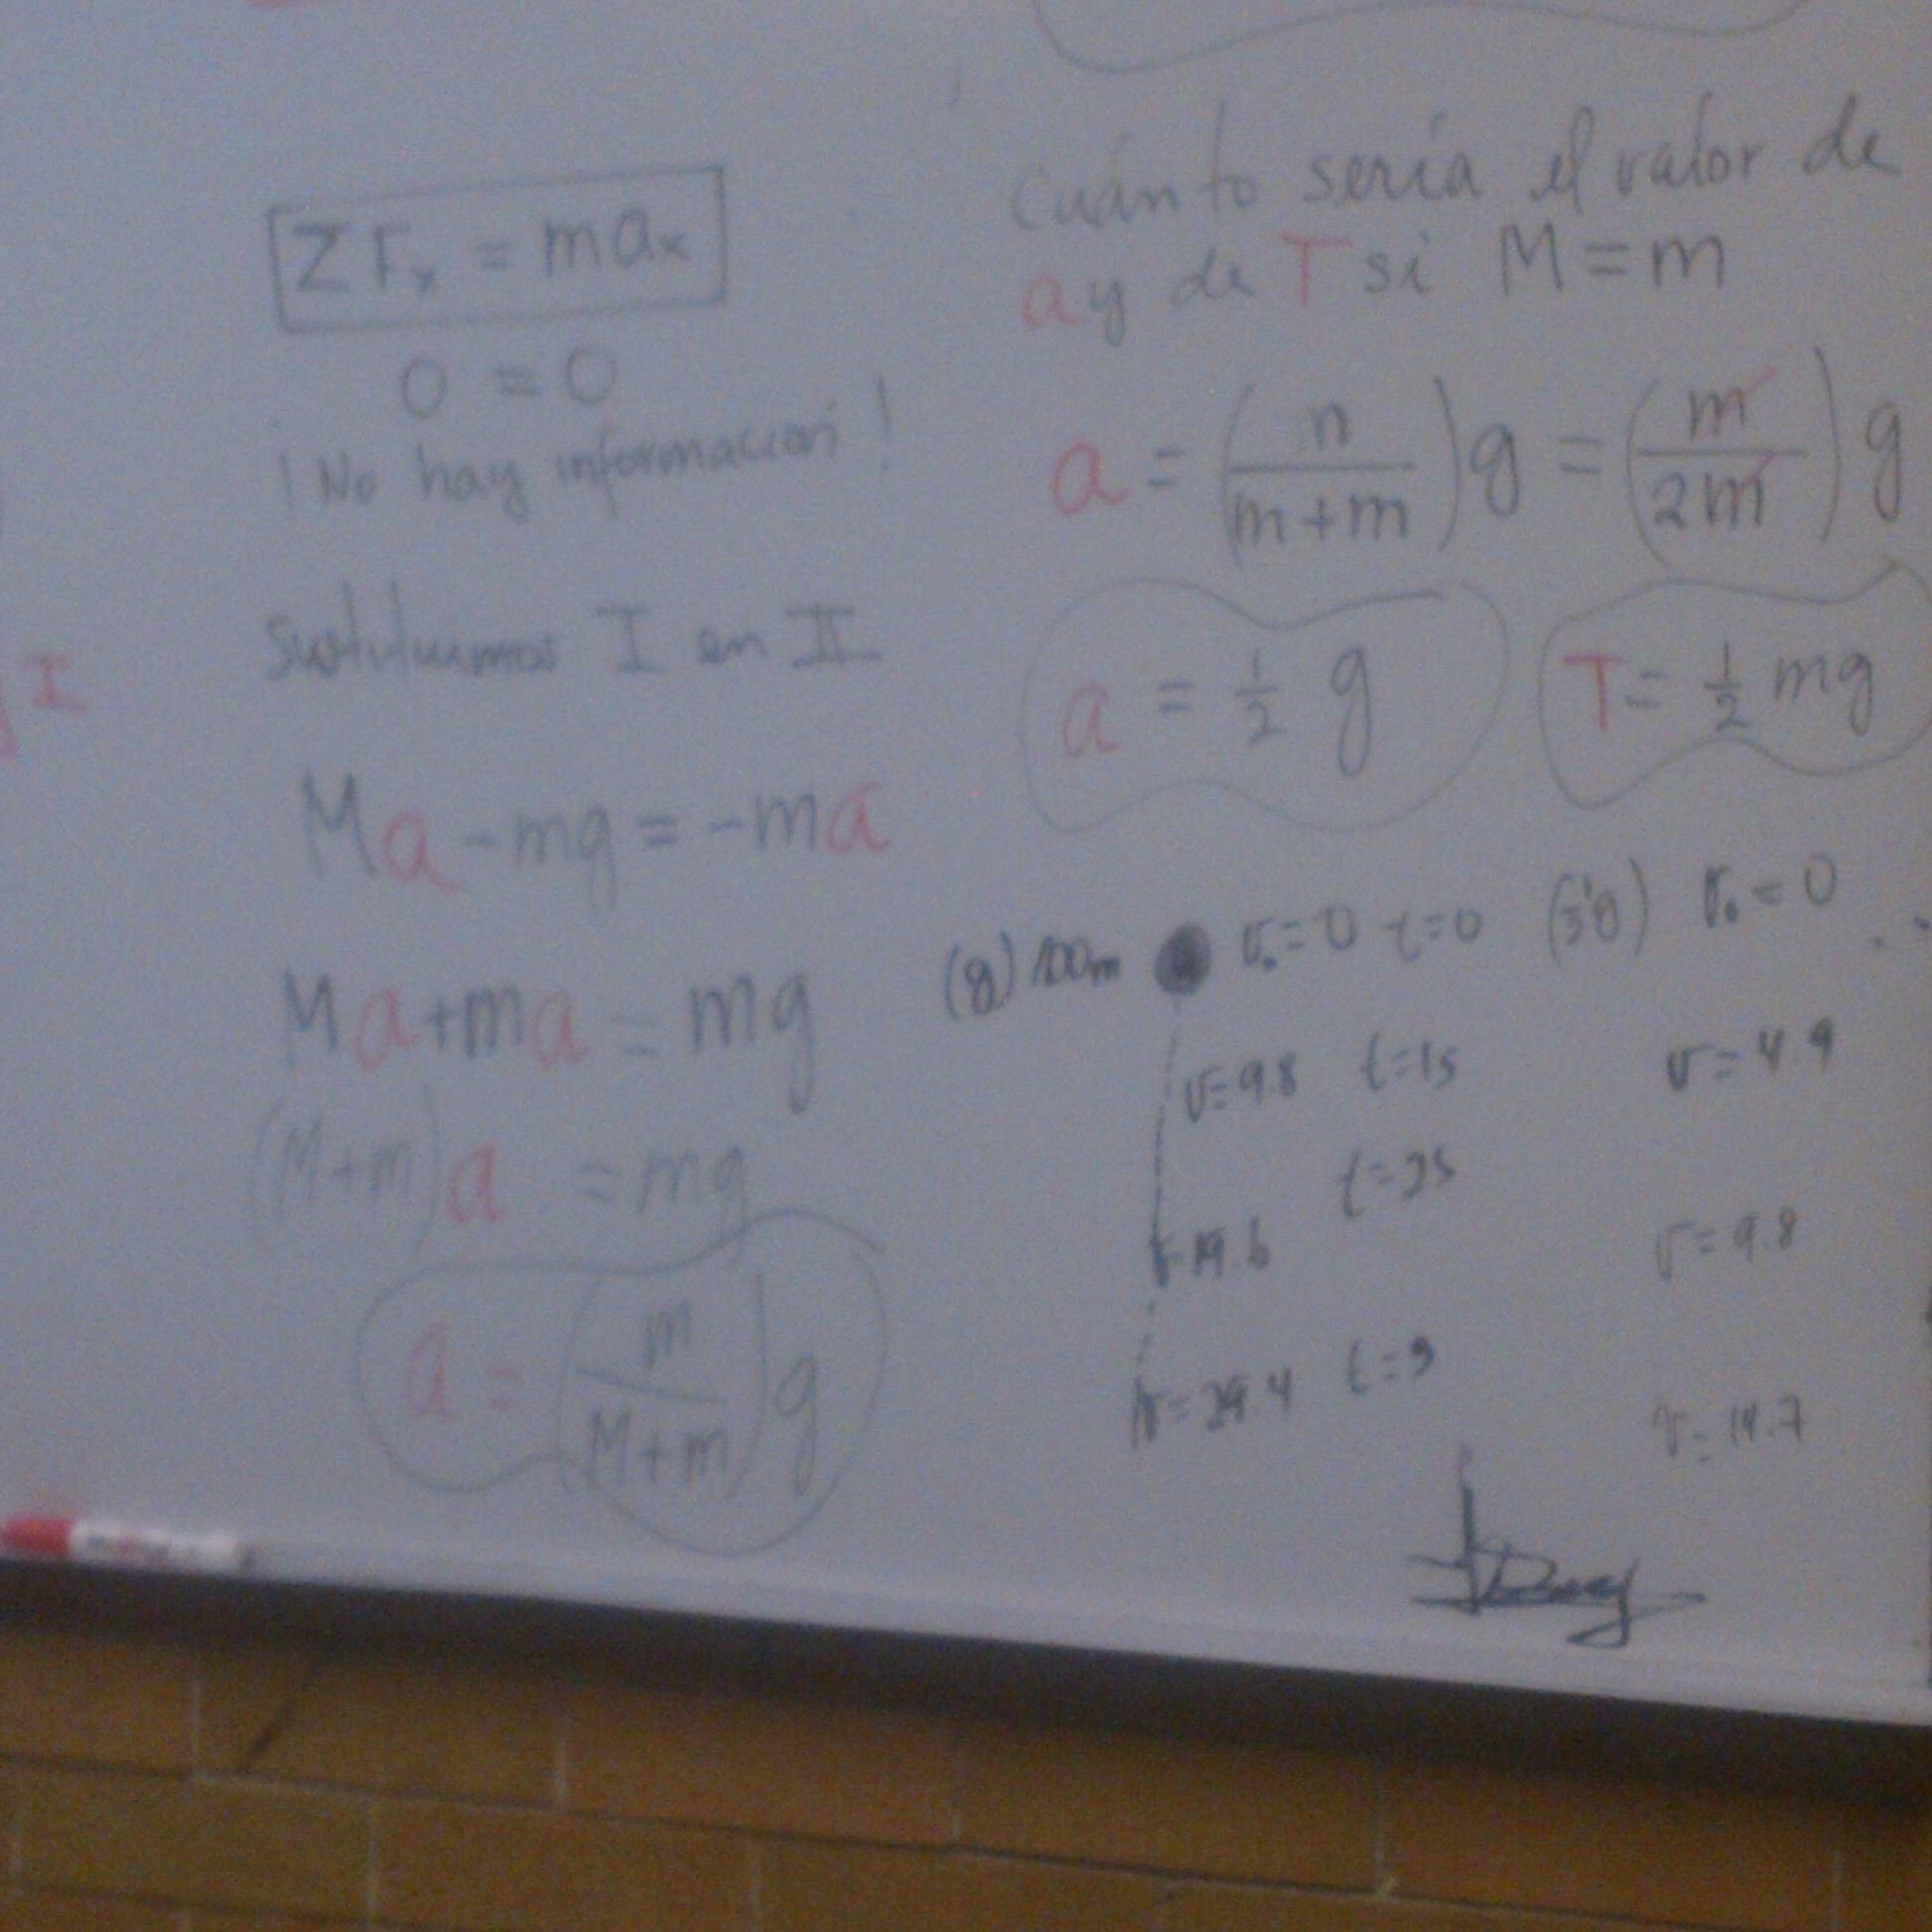 ΣFx = max
0 = 0
¡No hay información!
Sustituimos I en II
Ma - mg = -ma
Ma + ma = mg
(M+m)a = mg
a = (m/(M+m))g
I
Cuánto sería el valor de
a y de T si M = m
a = (m/(m+m))g = (m/2m)g
a = 1/2 g
T = 1/2 mg
(g) 100m v₀=0 t=0 v₀=0
v=9.8 t=1s v=4.9
t=2s
19.6 v=9.8
v=29.4 t=3 v=14.7